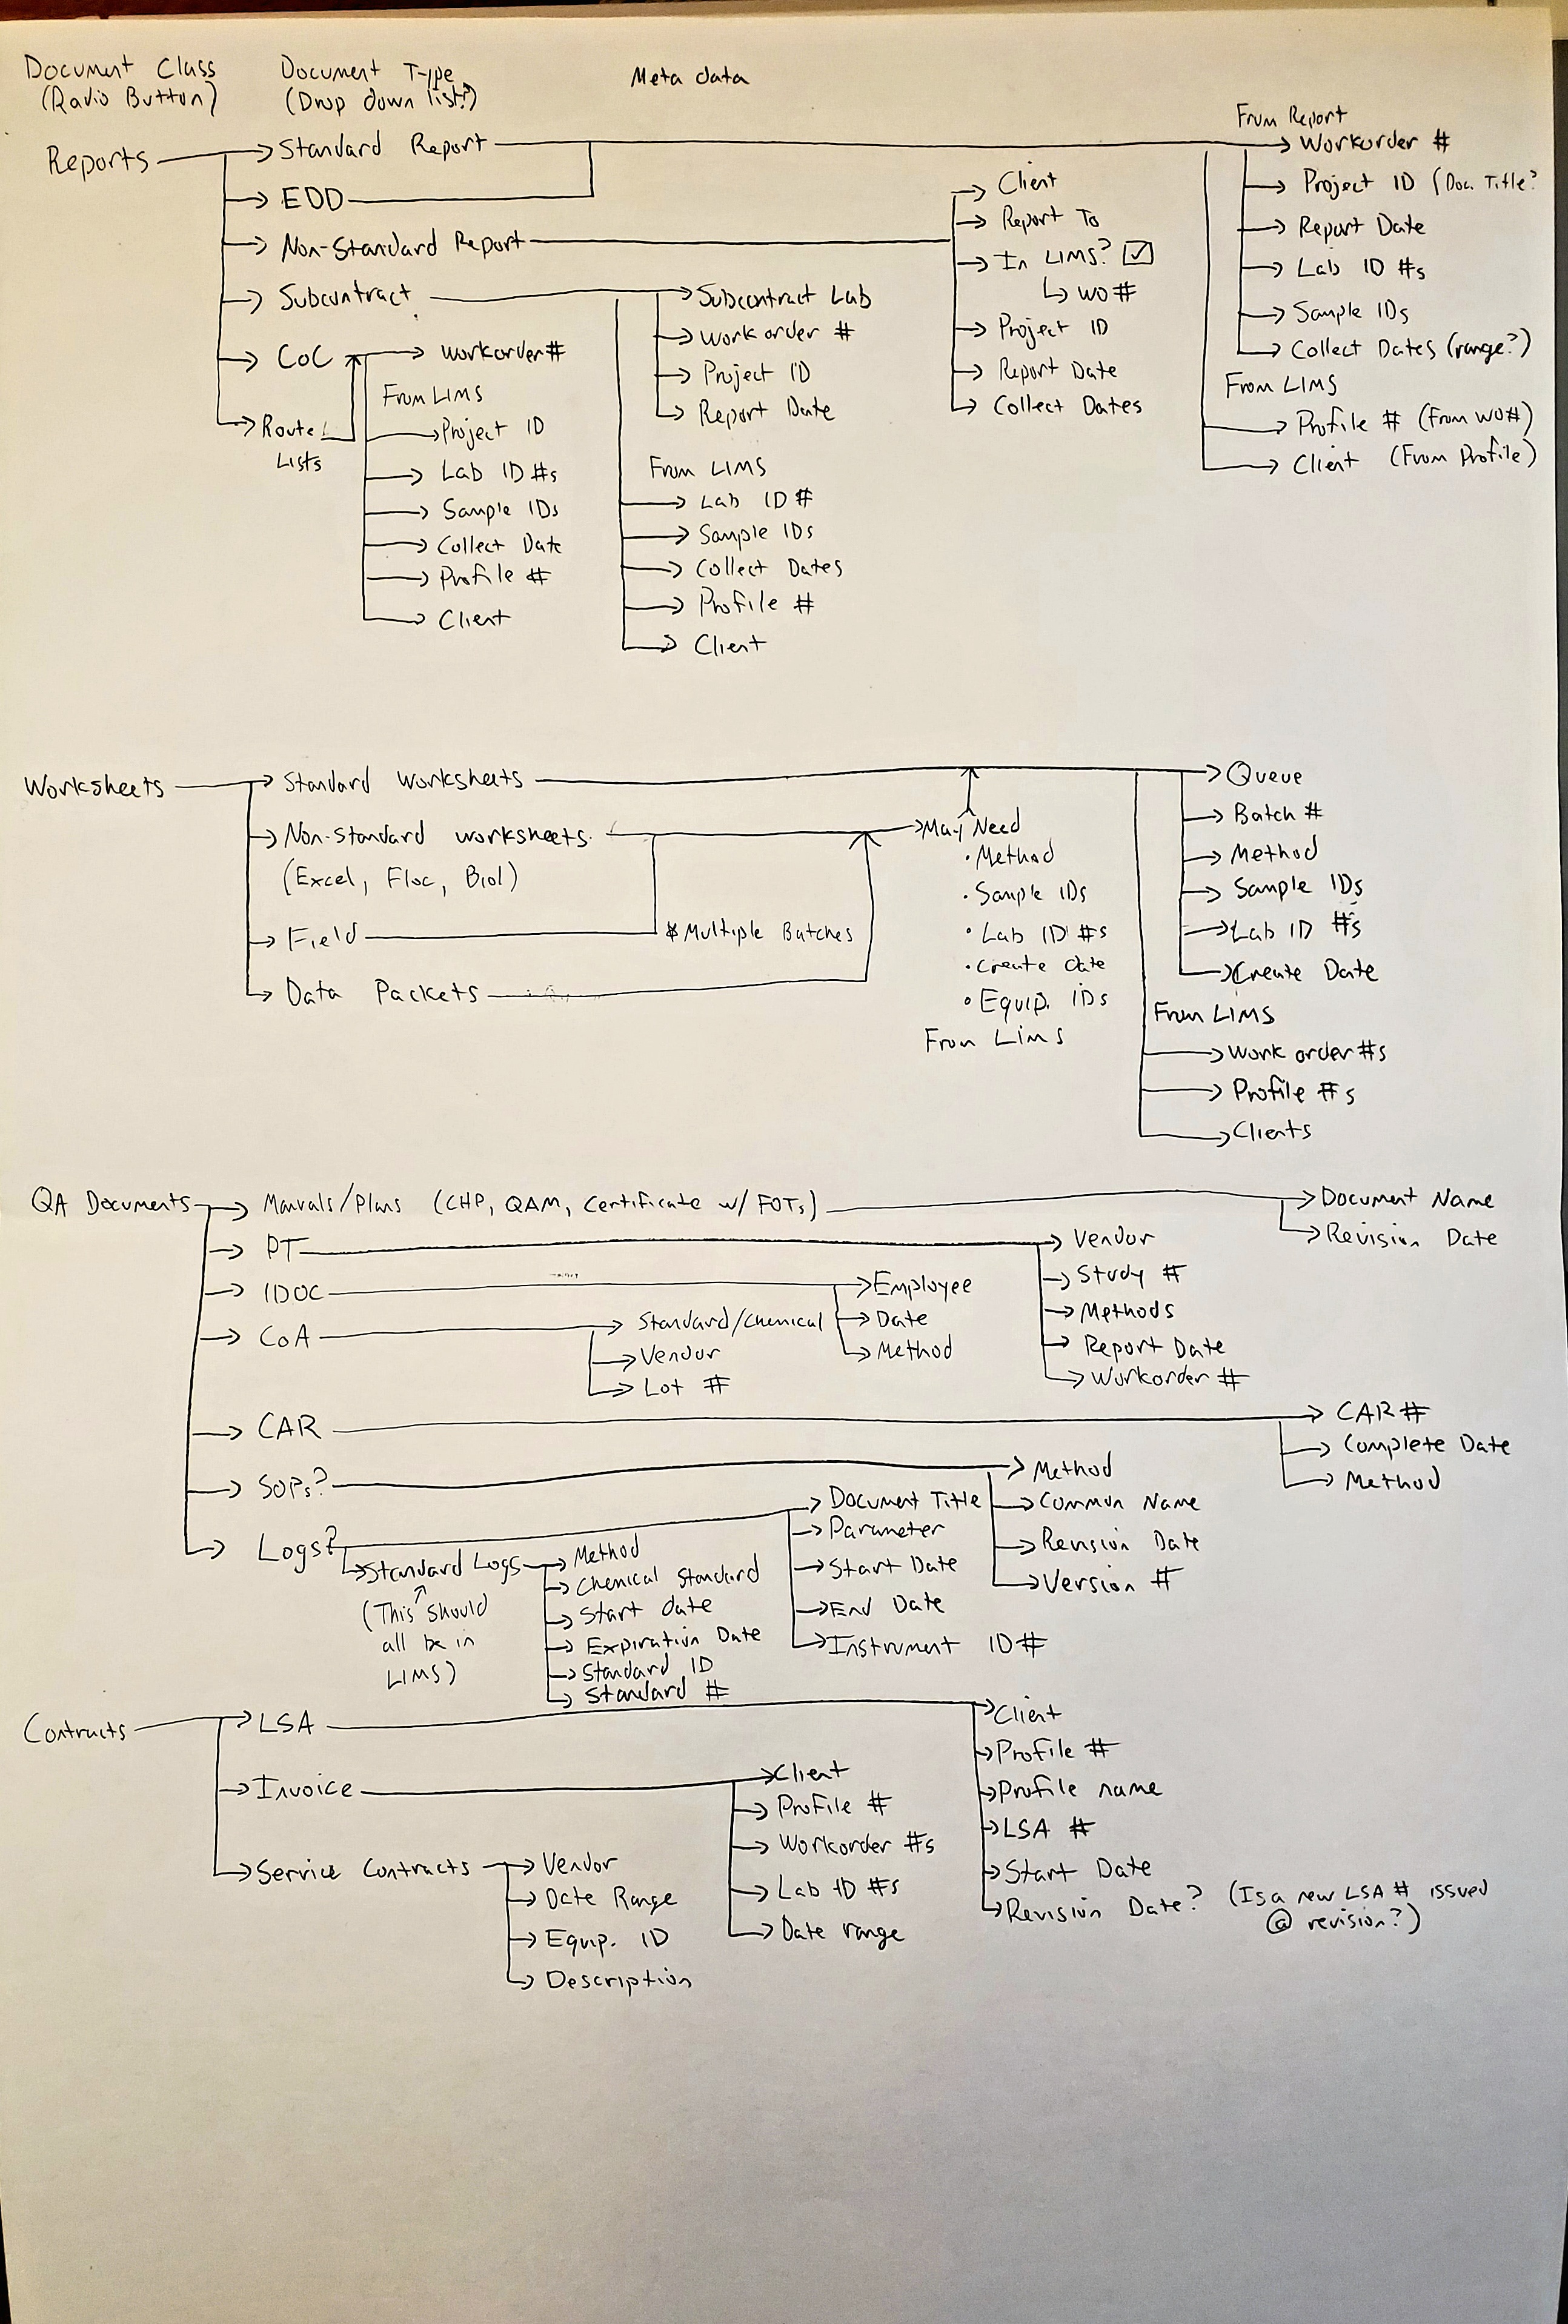 Document Class
(Radio Button)
Document Type
(Drop down list?)
Meta data
Reports
Standard Report
EDD
Non-Standard Report
Subcontract
CoC
Route
Lists
workorder#
From LIMS
Project ID
Lab ID #s
Sample IDs
Collect Date
Profile #
Client
Subcontract Lab
Work order #
Project ID
Report Date
From LIMS
Lab ID #
Sample IDs
Collect Dates
Profile #
Client
Client
Report To
In LIMS? ☑
WO#
Project ID
Report Date
Collect Dates
From Report
Workorder #
Project ID (Doc. Title?
Report Date
Lab ID #s
Sample IDs
Collect Dates (range?)
From LIMS
Profile # (From WO#)
Client (From Profile)
Worksheets
Standard Worksheets
Non-standard worksheets
(Excel, Floc, Biol)
Field
Data Packets
*Multiple Batches
May Need
• Method
• Sample IDs
• Lab ID #s
• Create date
• Equip. IDs
From Lims
Queue
Batch #
Method
Sample IDs
Lab ID #s
Create Date
From LIMS
Work order #s
Profile #s
Clients
QA Documents
Manuals/Plans (CHP, QAM, Certificate w/ FOTs)
Document Name
Revision Date
PT
Vendor
Study #
Methods
Report Date
Workorder #
IDOC
Employee
Date
Method
CoA
Standard/Chemical
Vendor
Lot #
CAR
CAR #
Complete Date
Method
SOPs?
Method
Common Name
Revision Date
Version #
Logs?
Document Title
Parameter
Start Date
End Date
Instrument ID #
Standard Logs
(This should
all be in
LIMS)
Method
Chemical Standard
Start date
Expiration Date
Standard ID
Standard #
Contracts
LSA
Client
Profile #
Profile name
LSA #
Start Date
Revision Date? (Is a new LSA # issued
@ revision?)
Invoice
Client
Profile #
Workorder #s
Lab ID #s
Date range
Service Contracts
Vendor
Date Range
Equip. ID
Description